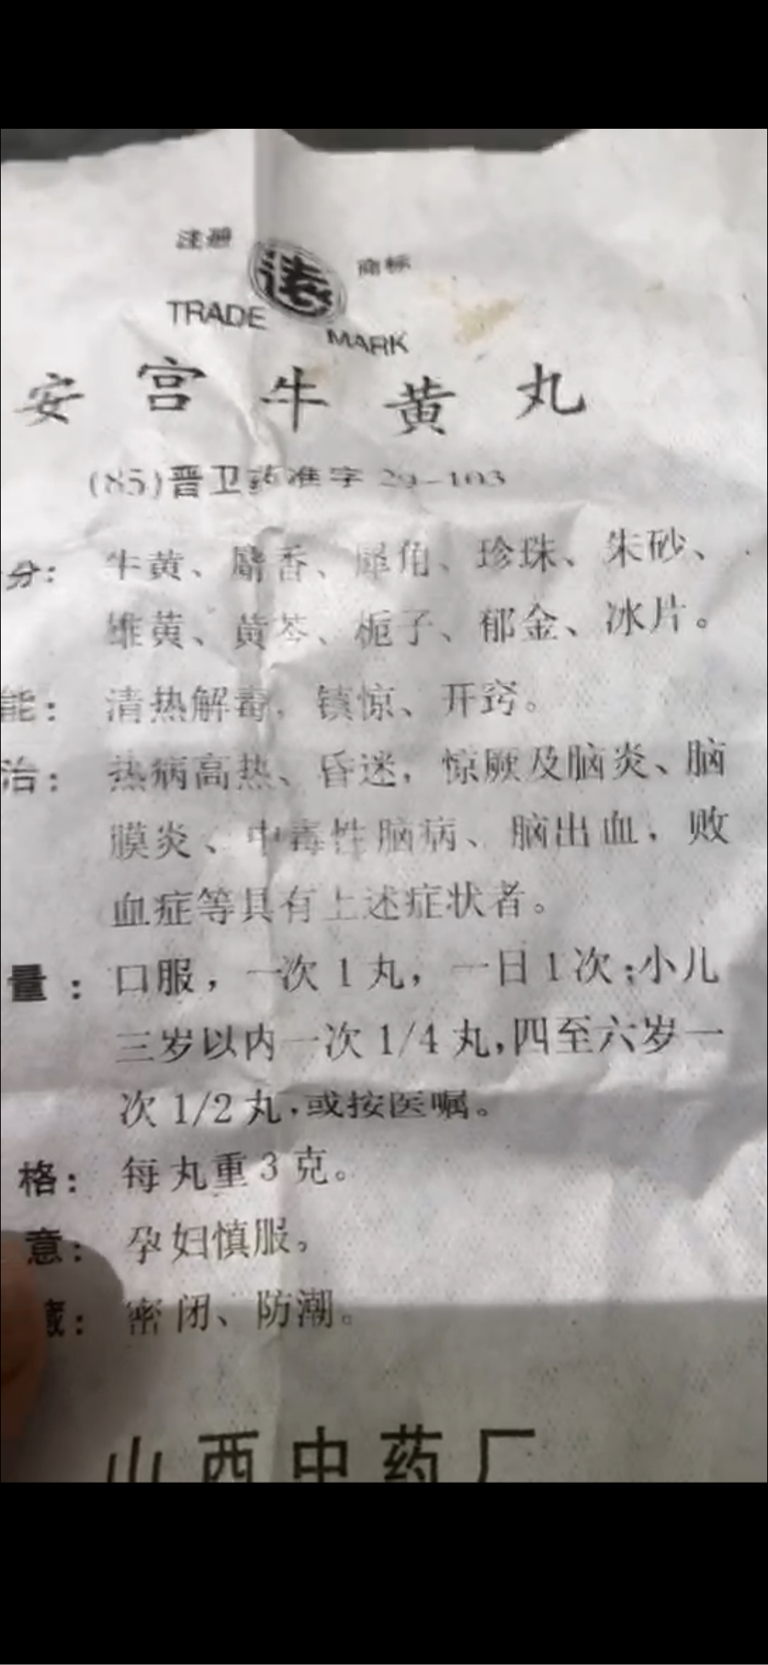 注册 商标
TRADE MARK
安宫牛黄丸
(85)晋卫药准字29-103
分：牛黄、麝香、犀角、珍珠、朱砂、
雄黄、黄芩、栀子、郁金、冰片。
能：清热解毒，镇惊、开窍。
治：热病高热、昏迷，惊厥及脑炎、脑
膜炎、中毒性脑病、脑出血，败
血症等具有上述症状者。
量：口服，一次1丸，一日1次；小儿
三岁以内一次1/4丸，四至六岁一
次1/2丸，或按医嘱。
格：每丸重3克。
意：孕妇慎服。
藏：密闭、防潮。
山西中药厂